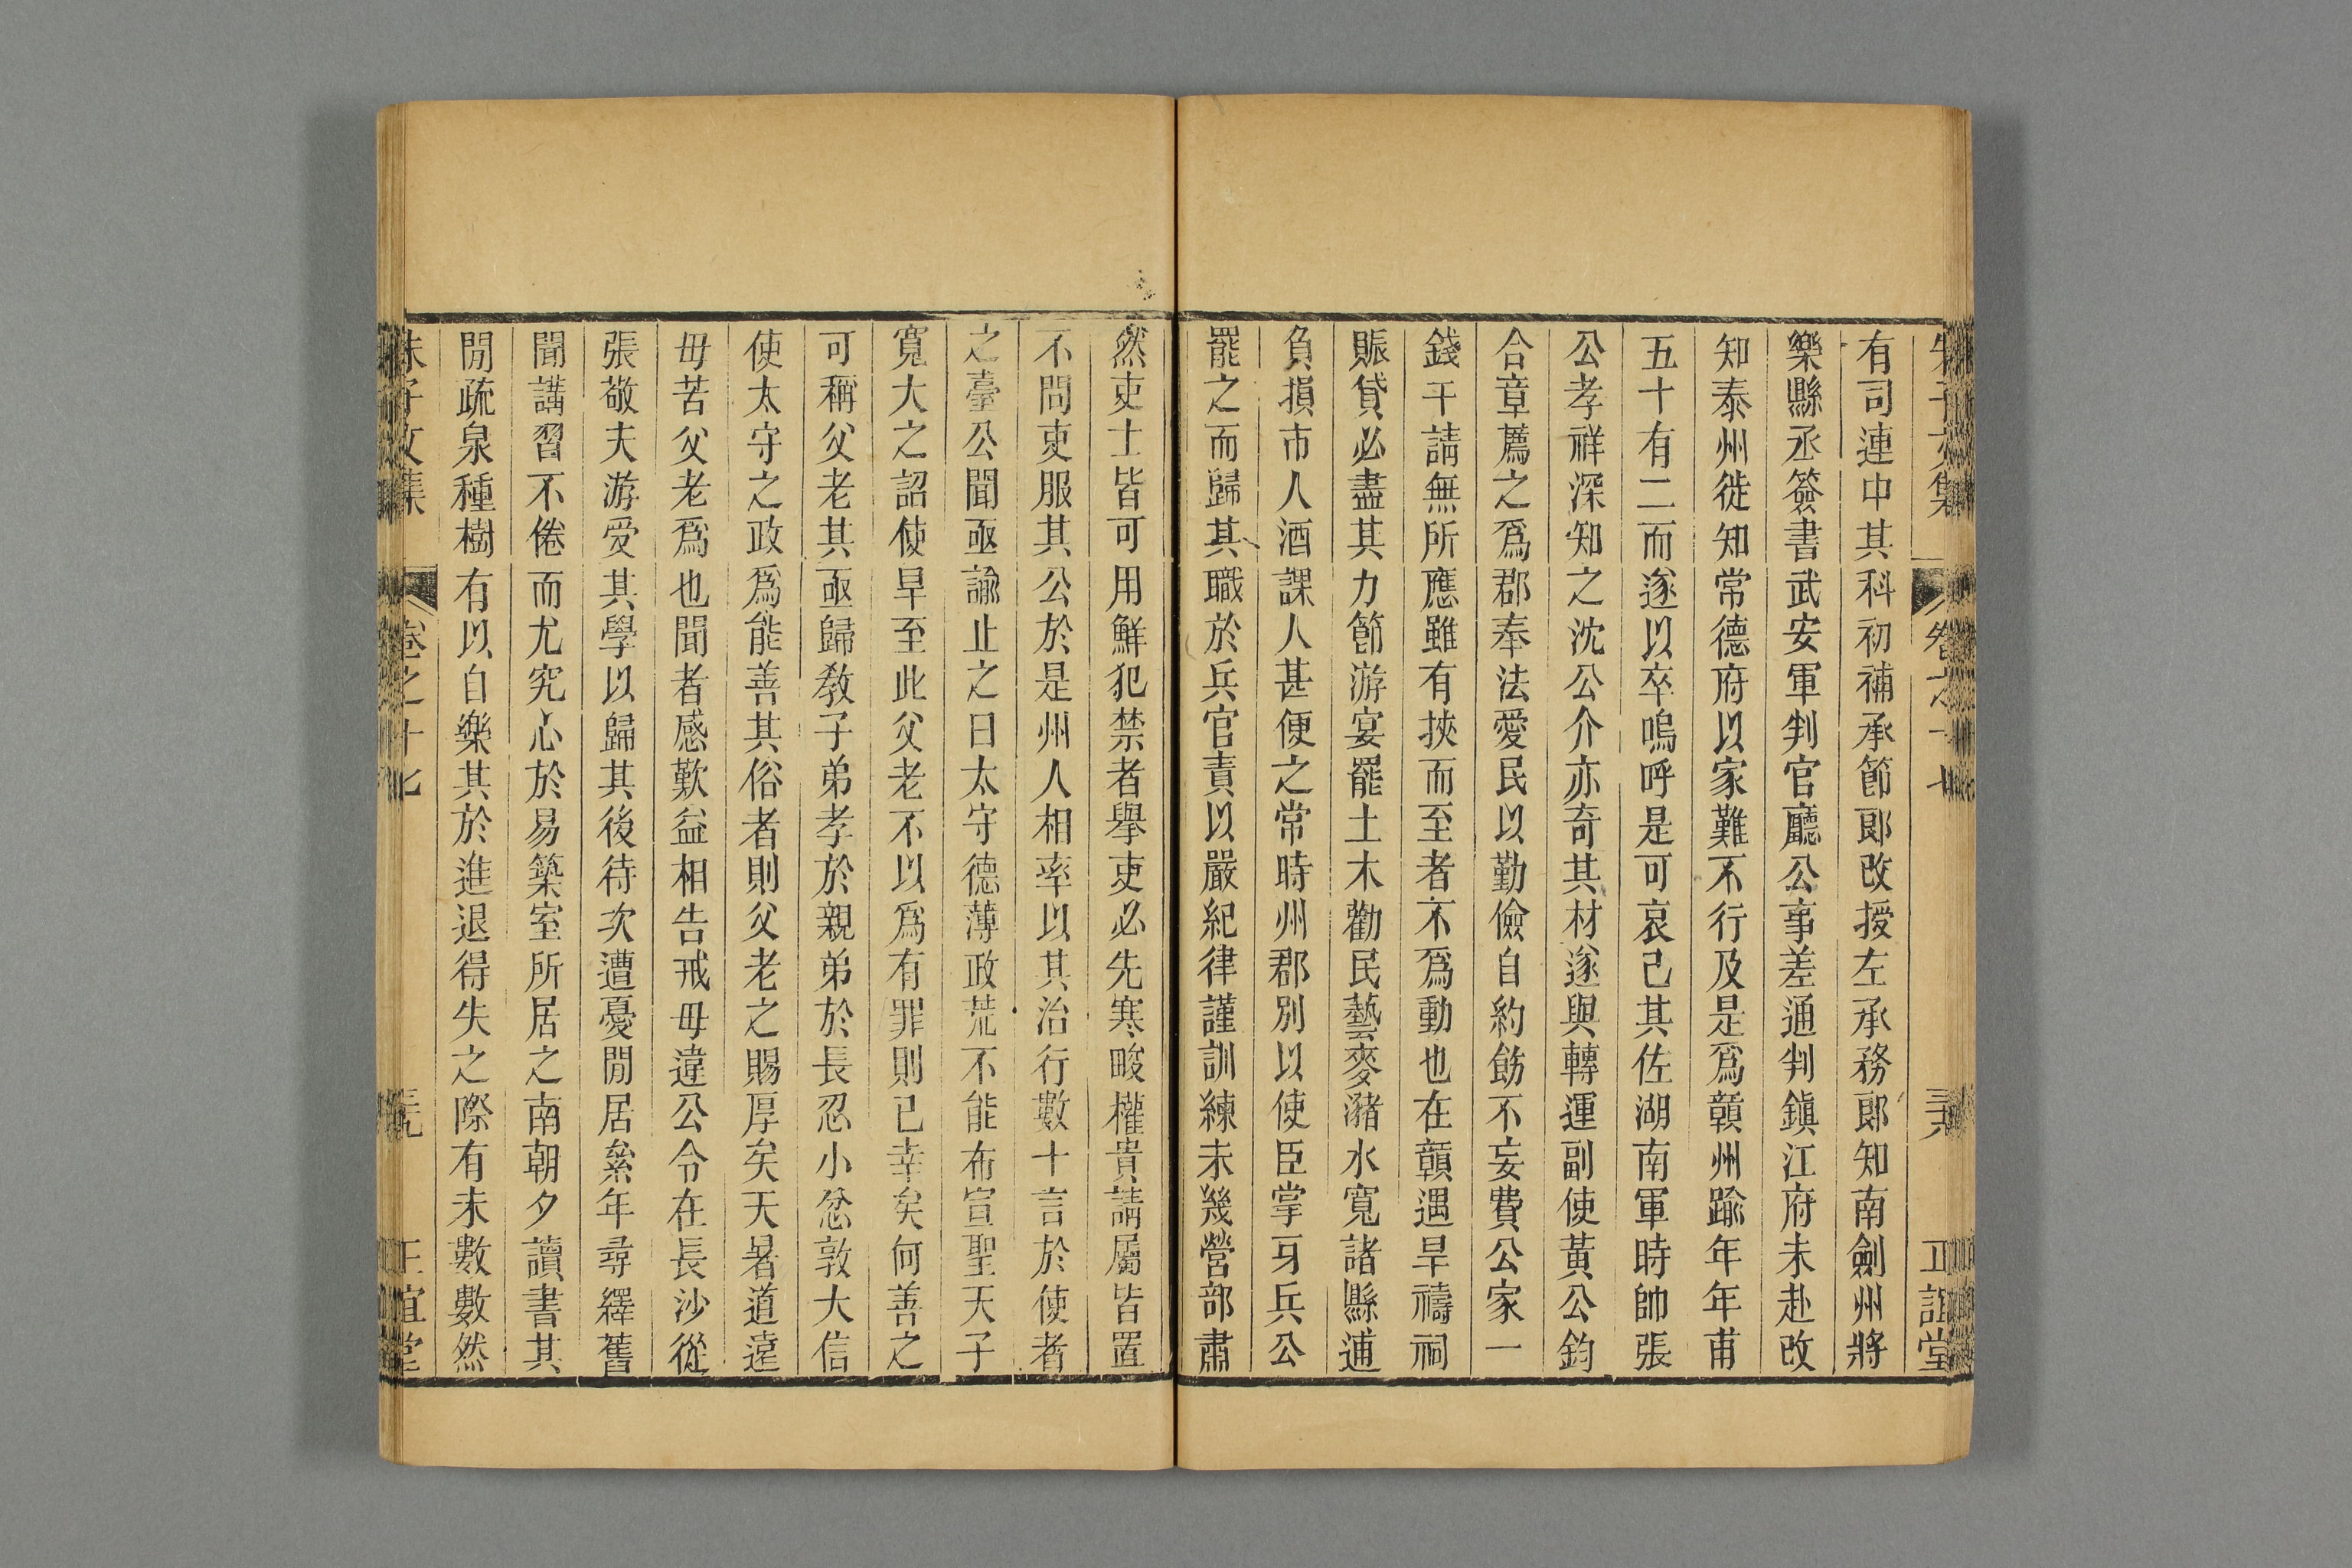 朱子文集 卷之十七 三六 正誼堂
有司連中其科初補承節郎改授左承務郎知南劍州將
樂縣丞簽書武安軍判官廳公事差通判鎮江府未赴改
知泰州徙知常德府以家難不行及是爲贛州踰年年甫
五十有二而遂以卒嗚呼是可哀已其佐湖南軍時帥張
公孝祥深知之沈公介亦奇其材遂與轉運副使黃公鈞
合章薦之爲郡奉法愛民以勤儉自約飭不妄費公家一
錢干請無所應雖有挾而至者不爲動也在贛遇旱禱祠
賑貸必盡其力節游宴罷土木勸民藝麥瀦水寬諸縣逋
負損市人酒課人甚便之常時州郡別以使臣掌牙兵公
罷之而歸其職於兵官責以嚴紀律謹訓練未幾營部肅
然吏士皆可用鮮犯禁者舉吏必先寒畯權貴請屬皆置
不問吏服其公於是州人相率以其治行數十言於使者
之臺公聞亟諭止之曰太守德薄政荒不能布宣聖天子
寬大之詔使旱至此父老不以爲有罪則已幸矣何善之
可稱父老其亟歸教子弟孝於親弟於長忍小忿敦大信
使太守之政爲能善其俗者則父老之賜厚矣天暑道遠
毋苦父老爲也聞者感歎益相告戒毋違公令在長沙從
張敬夫游受其學以歸其後待次遭憂閒居絫年尋繹舊
聞講習不倦而尤究心於易築室所居之南朝夕讀書其
閒疏泉種樹有以自樂其於進退得失之際有未數數然
朱子文集 卷之十七 正誼堂